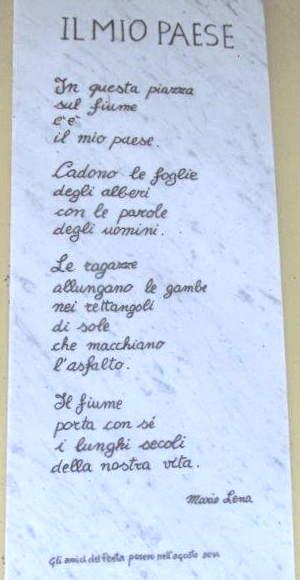 IL MIO PAESE
In questa piazza
sul fiume
c'è
il mio paese.
Cadono le foglie
degli alberi
con le parole
degli uomini.
Le ragazze
allungano le gambe
nei rettangoli
di sole
che macchiano
l'asfalto.
Il fiume
porta con sé
i lunghi secoli
della nostra vita.
Mario Lena
Gli amici del Poeta posero nell'agosto 2014